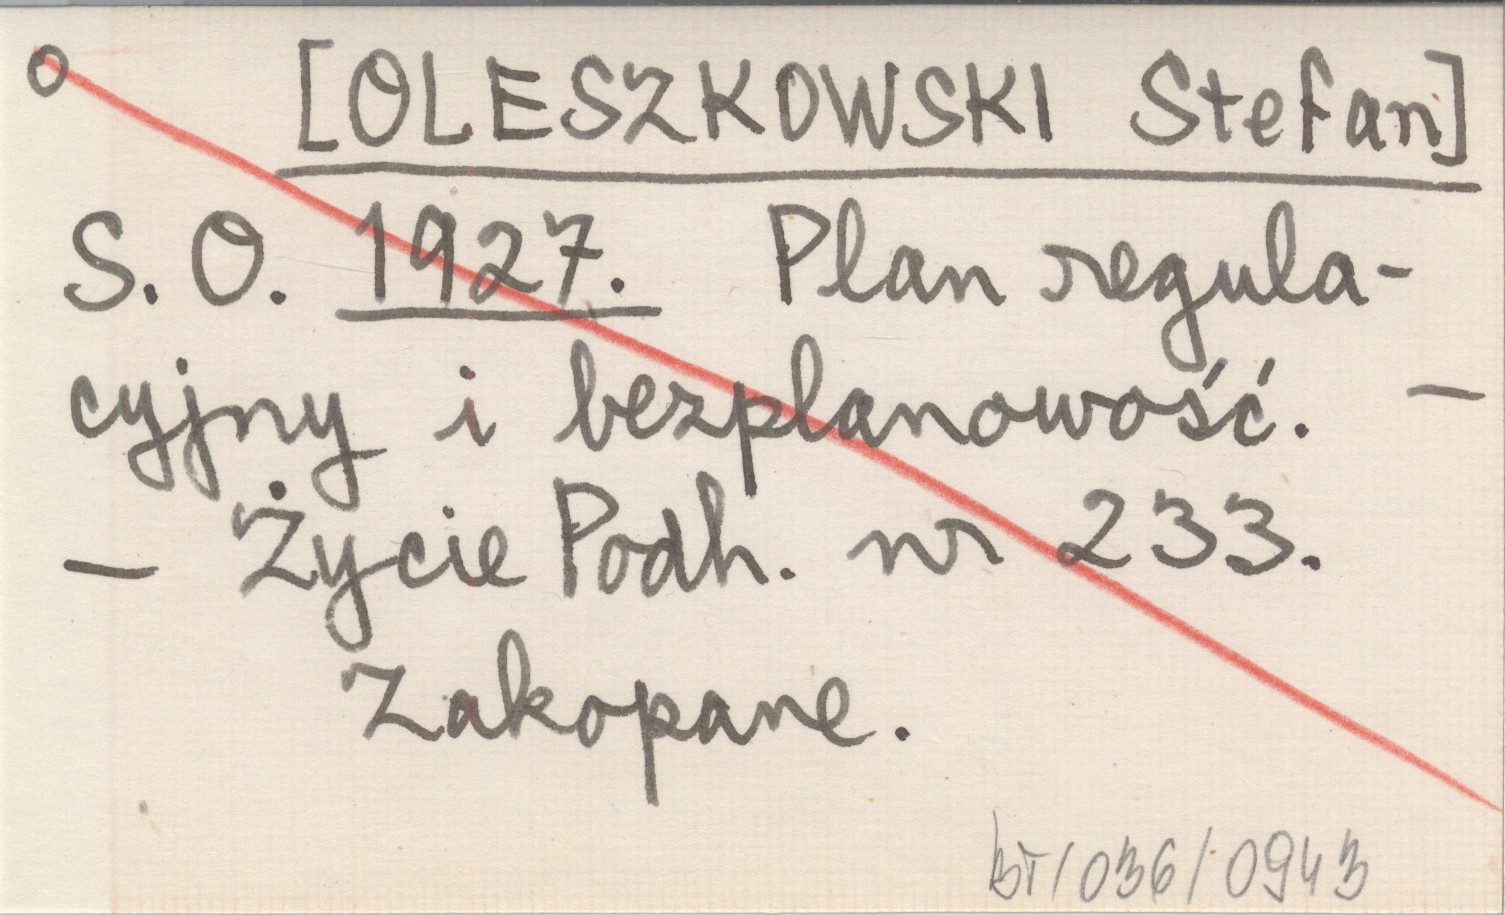 o [OLESZKOWSKI Stefan]
S. O. 1927. Plan regula-
cyjny i bezplanowość. —
— Życie Podh. nr 233.
Zakopane.
BT/036/0943